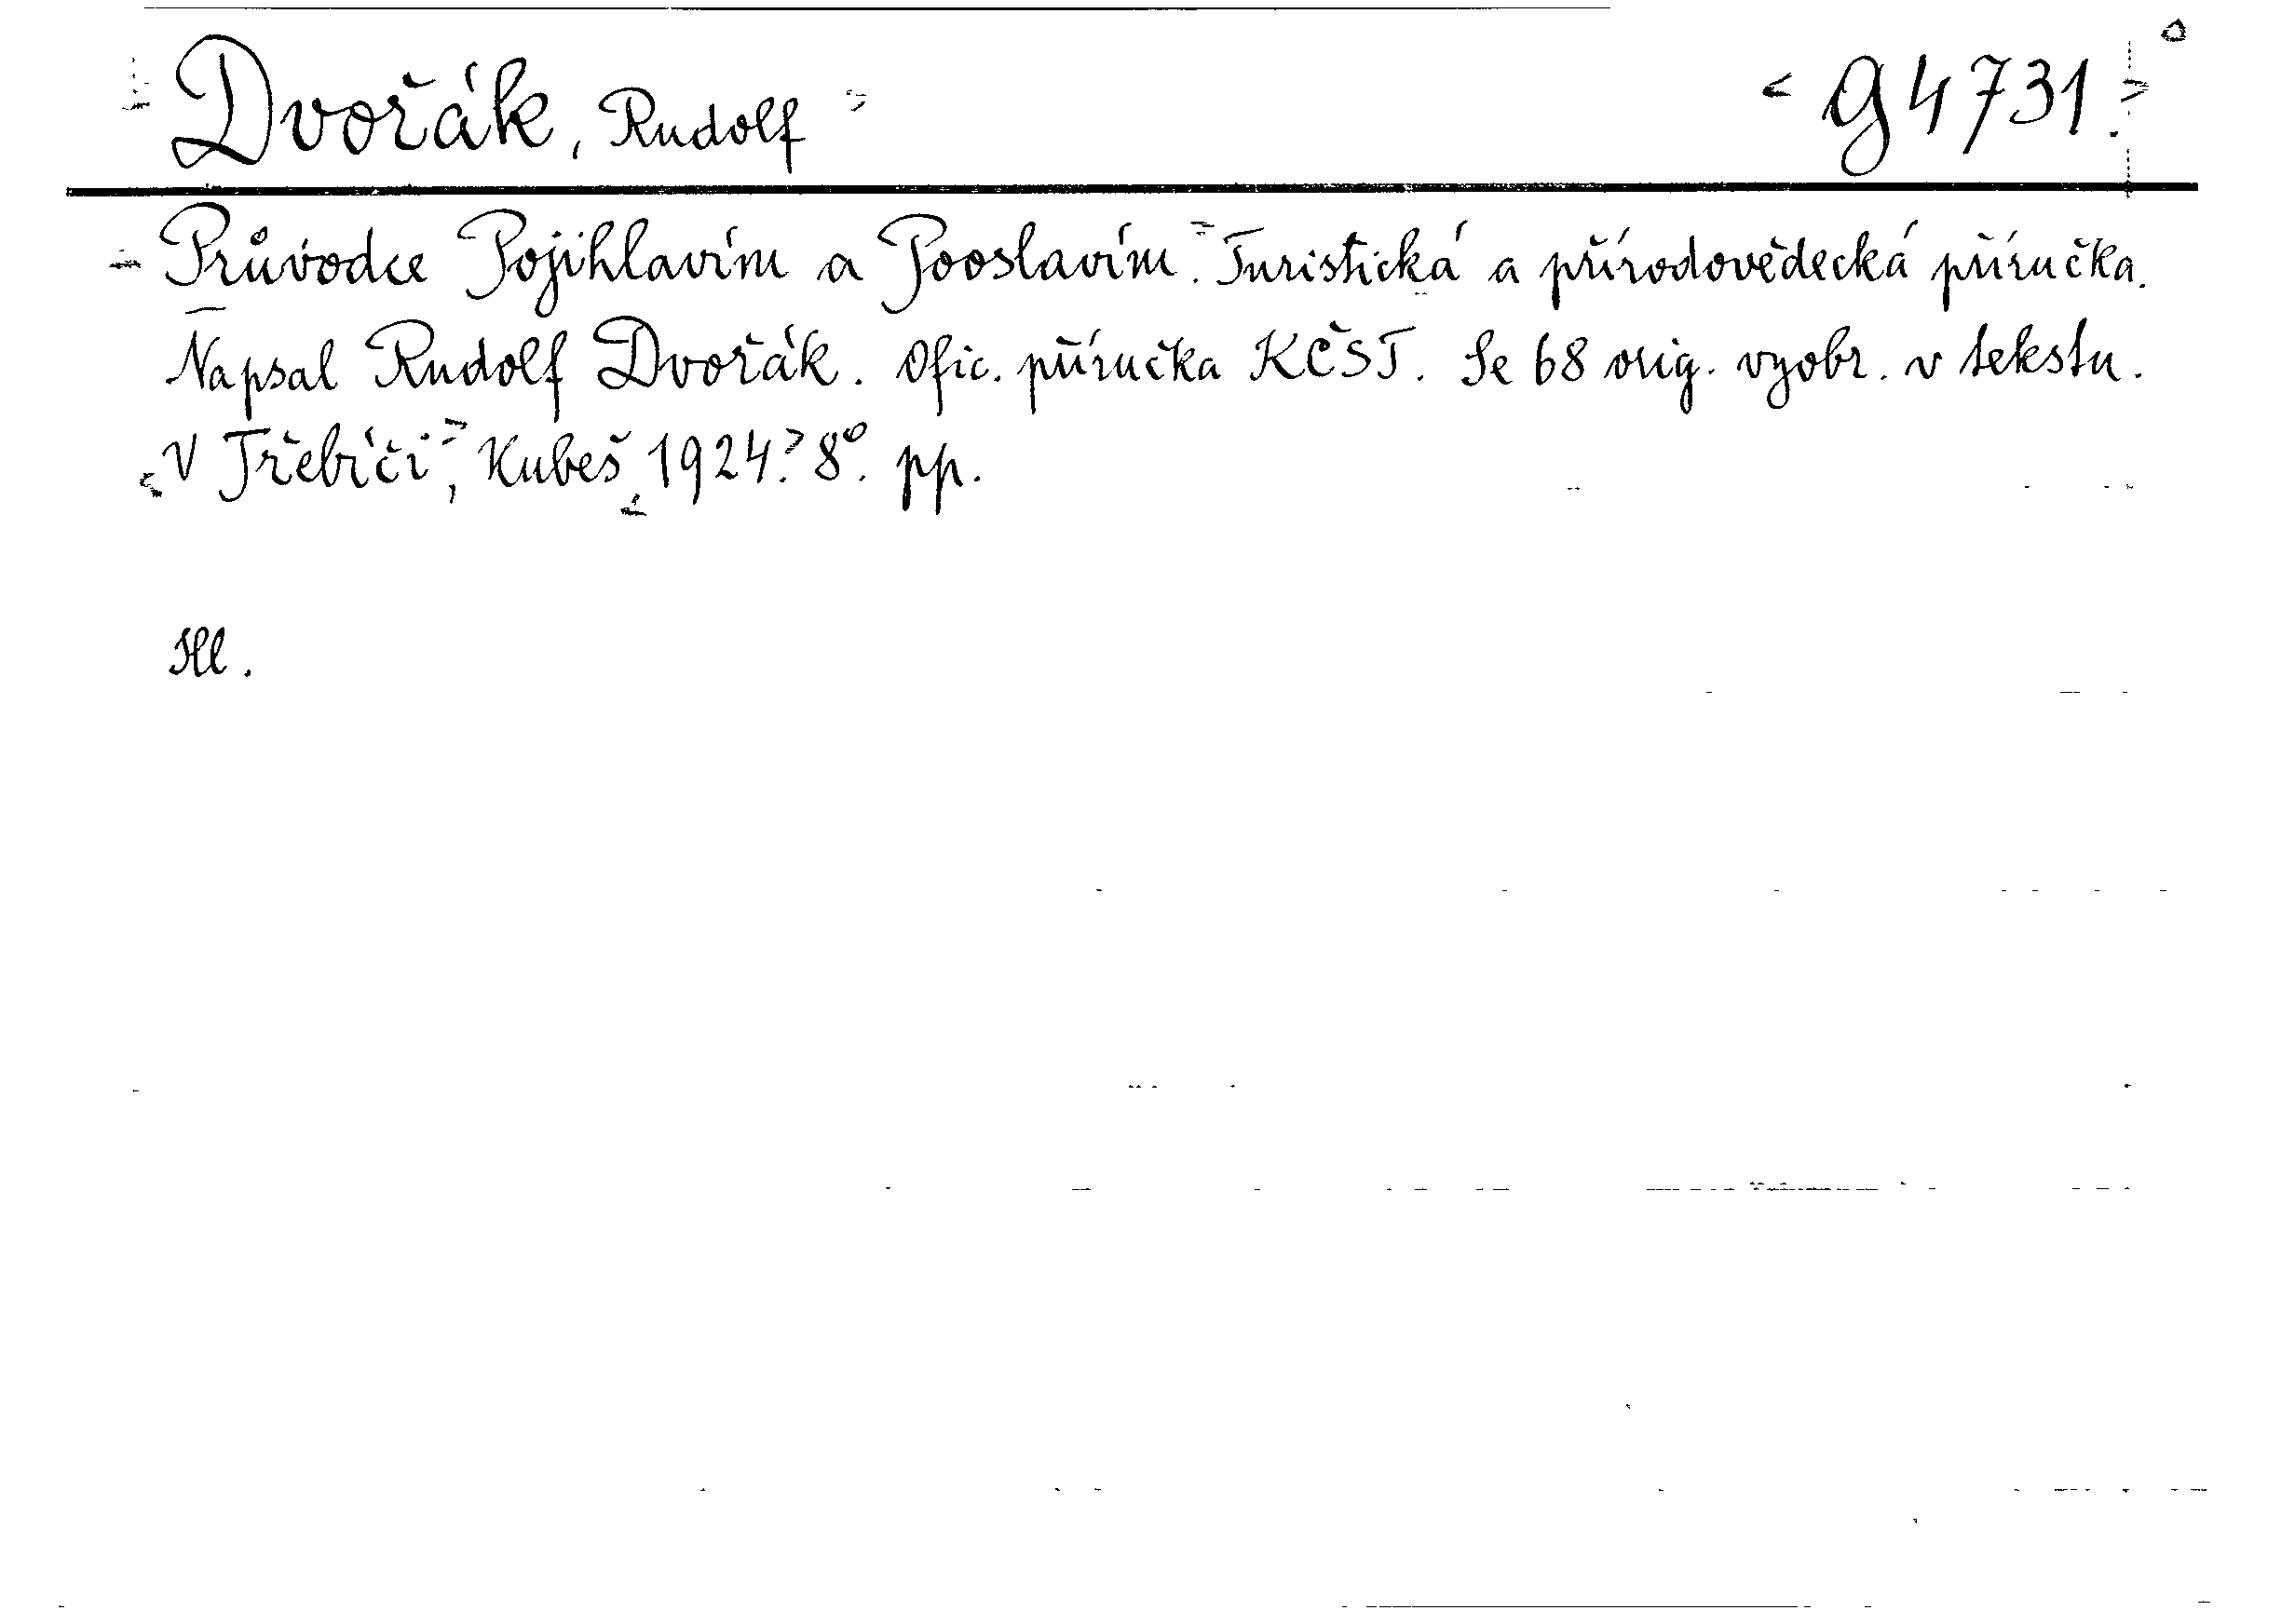 Dvořák, Rudolf < g 4731. >
Průvodce Pojihlavím a Pooslavím. Turistická a přírodovědecká příručka.
Napsal Rudolf Dvořák. Ofic. příručka KČST. Se 68 orig. vyobr. v tekstu.
V Třebíči, Kubeš, 1924. 8°. pp.
Hl.